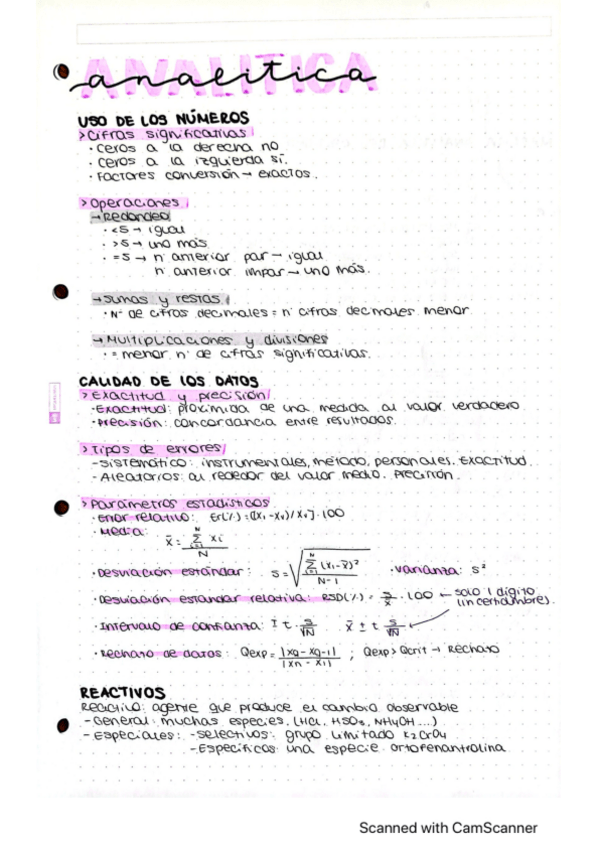 ANALITICA
analitica
USO DE LOS NÚMEROS
> Cifras significativas
· ceros a la derecha no
· ceros a la izquierda sí.
· Factores conversión → exactos.
> Operaciones
→ Redondeo
· <5 → igual
· >5 → uno más
· =5 → nº anterior par → igual
nº anterior impar → uno más.
→ Sumas y restas
· Nº de cifras decimales = nº cifras decimales menor
→ Multiplicaciones y divisiones
· = menor nº de cifras significativas.
CALIDAD DE LOS DATOS
> Exactitud y precisión
· Exactitud: proximida de una medida al valor verdadero
· Precisión: concordancia entre resultados.
> Tipos de errores
- Sistemático: instrumentales, método, personales. Exactitud.
- Aleatorios: al rededor del valor medio. Precisión.
> Parámetros estadísticos
· Error relativo: Er(%) = (|X₁ - Xᵥ|/Xᵥ) · 100
· Media: x̄ = Σ xi / N
· Desviación estándar: s = √(Σ(xi - x̄)² / N-1) · Varianza: s²
· Desviación estándar relativa: RSD(%) = s/x̄ · 100 ← solo 1 dígito
(incertidumbre).
· Intervalo de confianza: ± t s/√N x̄ ± t s/√N
· Rechazo de datos: Qexp = |xq - xq-1| / |xn - x1| ; Qexp > Qcrit → Rechazo
REACTIVOS
Reactivo: agente que produce el cambio observable
- General: muchas especies. (HCl, HSO₃, NH₄OH ...)
- Especiales: - Selectivos: grupo limitado K₂CrO₄
- Específicos: una especie ortofenantrolina
Scanned with CamScanner